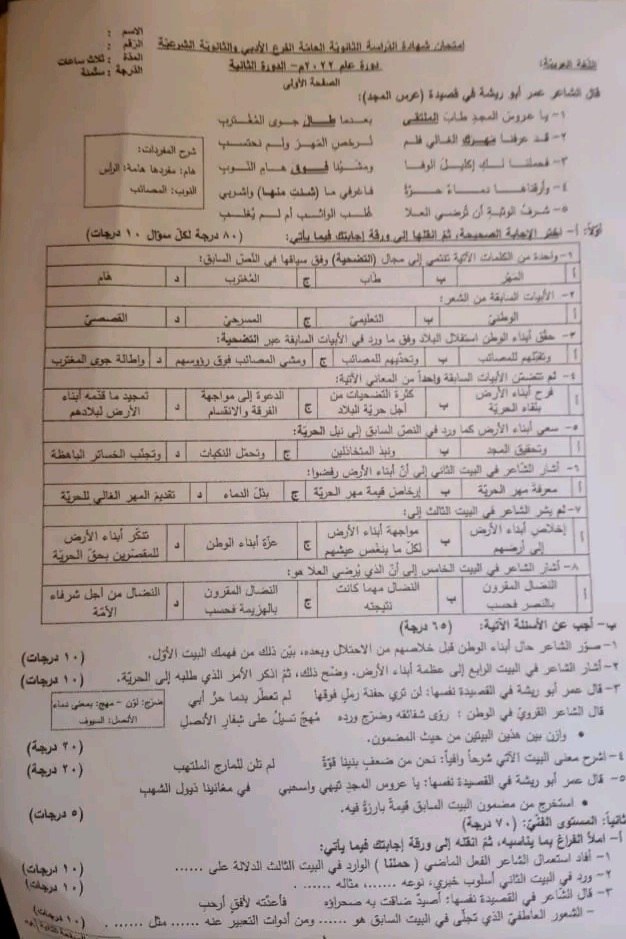 امتحان شهادة الدراسة الثانوية العامة الفرع الأدبي والثانوية الشرعية
الاسم :
الرقم :
دورة عام ٢٠٢٢م – الدورة الثانية
اللغة العربية:
المدة : ثلاث ساعات
الدرجة : ستمئة
الصفحة الأولى
قال الشاعر عمر أبو ريشة في قصيدة (عرس المجد):
١- يا عروس المجدِ طابَ الملتقى بعدما طال جوى المُغتربِ
٢- قد عرفنا مهركِ الغالي فلم نُرخص المهرَ ولم نحتسبِ
٣- فحملنا لكِ إكليلَ الوفا ومشينا فوق هامِ النُّوبِ
٤- وأرقناها دماءً حرّةً فاغرفي ما (شئتِ منها) واشربي
٥- شرفُ الوثبةِ أن تُرضي العلا غُلبَ الواثبُ أم لم يُغلبِ
شرح المفردات:
هام: مفردها هامة: الرأس
النوب: المصائب
أولاً: أ- اختر الإجابة الصحيحة، ثمّ انقلها إلى ورقة إجابتك فيما يأتي: (٨٠ درجة لكل سؤال ١٠ درجات)
١- واحدة من الكلمات الآتية تنتمي إلى مجال (التضحية) وفق سياقها في النّص السابق:
أ المهر ب طاب ج المُغترب د هام
٢- الأبيات السابقة من الشعر:
أ الوطنيّ ب التعليميّ ج المسرحيّ د القصصيّ
٣- حقّق أبناء الوطن استقلال البلاد وفق ما ورد في الأبيات السابقة عبر التضحية:
أ وتقبّلهم للمصائب ب وتحدّيهم للمصائب ج ومشي المصائب فوق رؤوسهم د وإطالة جوى المغترب
٤- لم تتضمّن الأبيات السابقة واحداً من المعاني الآتية:
أ فرح أبناء الأرض بلقاء الحريّة ب كثرة التضحيات من أجل حريّة البلاد ج الدعوة إلى مواجهة الفرقة والانقسام د تمجيد ما قدّمه أبناء الأرض لبلادهم
٥- سعى أبناء الأرض كما ورد في النصّ السابق إلى نيل الحريّة:
أ وتحقيق المجد ب ونبذ المتخاذلين ج وتحمّل النكبات د وتجنّب الخسائر الباهظة
٦- أشار الشّاعر في البيت الثاني إلى أنّ أبناء الأرض رفضوا:
أ معرفة مهر الحريّة ب إرخاص قيمة مهر الحريّة ج بذل الدماء د تقديم المهر الغالي للحريّة
٧- لم يشر الشاعر في البيت الثالث إلى:
أ إخلاص أبناء الأرض إلى أرضهم ب مواجهة أبناء الأرض لكلّ ما ينغّص عيشهم ج عزّة أبناء الوطن د تنكّر أبناء الأرض للمقصّرين بحقّ الحريّة
٨- أشار الشاعر في البيت الخامس إلى أنّ الذي يُرضي العلا هو:
أ النضال المقرون بالنصر فحسب ب النضال مهما كانت نتيجته ج النضال المقرون بالهزيمة فحسب د النضال من أجل شرفاء الأمّة
ب- أجب عن الأسئلة الآتية: (٦٥ درجة)
١- صوّر الشاعر حال أبناء الوطن قبل خلاصهم من الاحتلال وبعده، بيّن ذلك من فهمك البيت الأوّل. (١٠ درجات)
٢- أشار الشاعر في البيت الرابع إلى عظمة أبناء الأرض. وضّح ذلك، ثمّ اذكر الأمر الذي طلبه إلى الحريّة. (١٠ درجات)
٣- قال عمر أبو ريشة في القصيدة نفسها: لن تري حفنة رملٍ فوقها لم تعطّر بدما حرٍّ أبي
قال الشاعر القرويّ في الوطن : روّى شقائقه وضرّج ورده مُهجٌ تسيلُ على شِفارِ الأنصلِ
ضرّج: لوّن – مهج: بمعنى دماء
الأنصل: السيوف
• وازن بين هذين البيتين من حيث المضمون. (٢٠ درجة)
٤- اشرح معنى البيت الآتي شرحاً وافياً: نحن من ضعفٍ بنينا قوّةً لم تلن للمارجِ الملتهبِ (٢٠ درجة)
٥- قال عمر أبو ريشة في القصيدة نفسها: يا عروس المجدِ تيهي واسحبي في مغانينا ذيول الشهبِ
• استخرج من مضمون البيت السابق قيمةً بارزةً فيه. (٥ درجات)
ثانياً: المستوى الفنّيّ: (٧٠ درجة)
أ- املأ الفراغ بما يناسبه، ثمّ انقله إلى ورقة إجابتك فيما يأتي:
١- أفاد استعمال الشاعر الفعل الماضي ( حملنا ) الوارد في البيت الثالث الدلالة على ...... (١٠ درجات)
٢- ورد في البيت الثاني أسلوب خبري، نوعه ......، مثاله ...... (١٠ درجات)
٣- قال الشاعر في القصيدة نفسها: أصيدٌ ضاقت به صحراؤه فأعدّته لأفقٍ أرحبِ
– الشعور العاطفيّ الذي تجلّى في البيت السابق هو ...... ومن أدوات التعبير عنه ...... مثل ...... . (١٠ درجات)